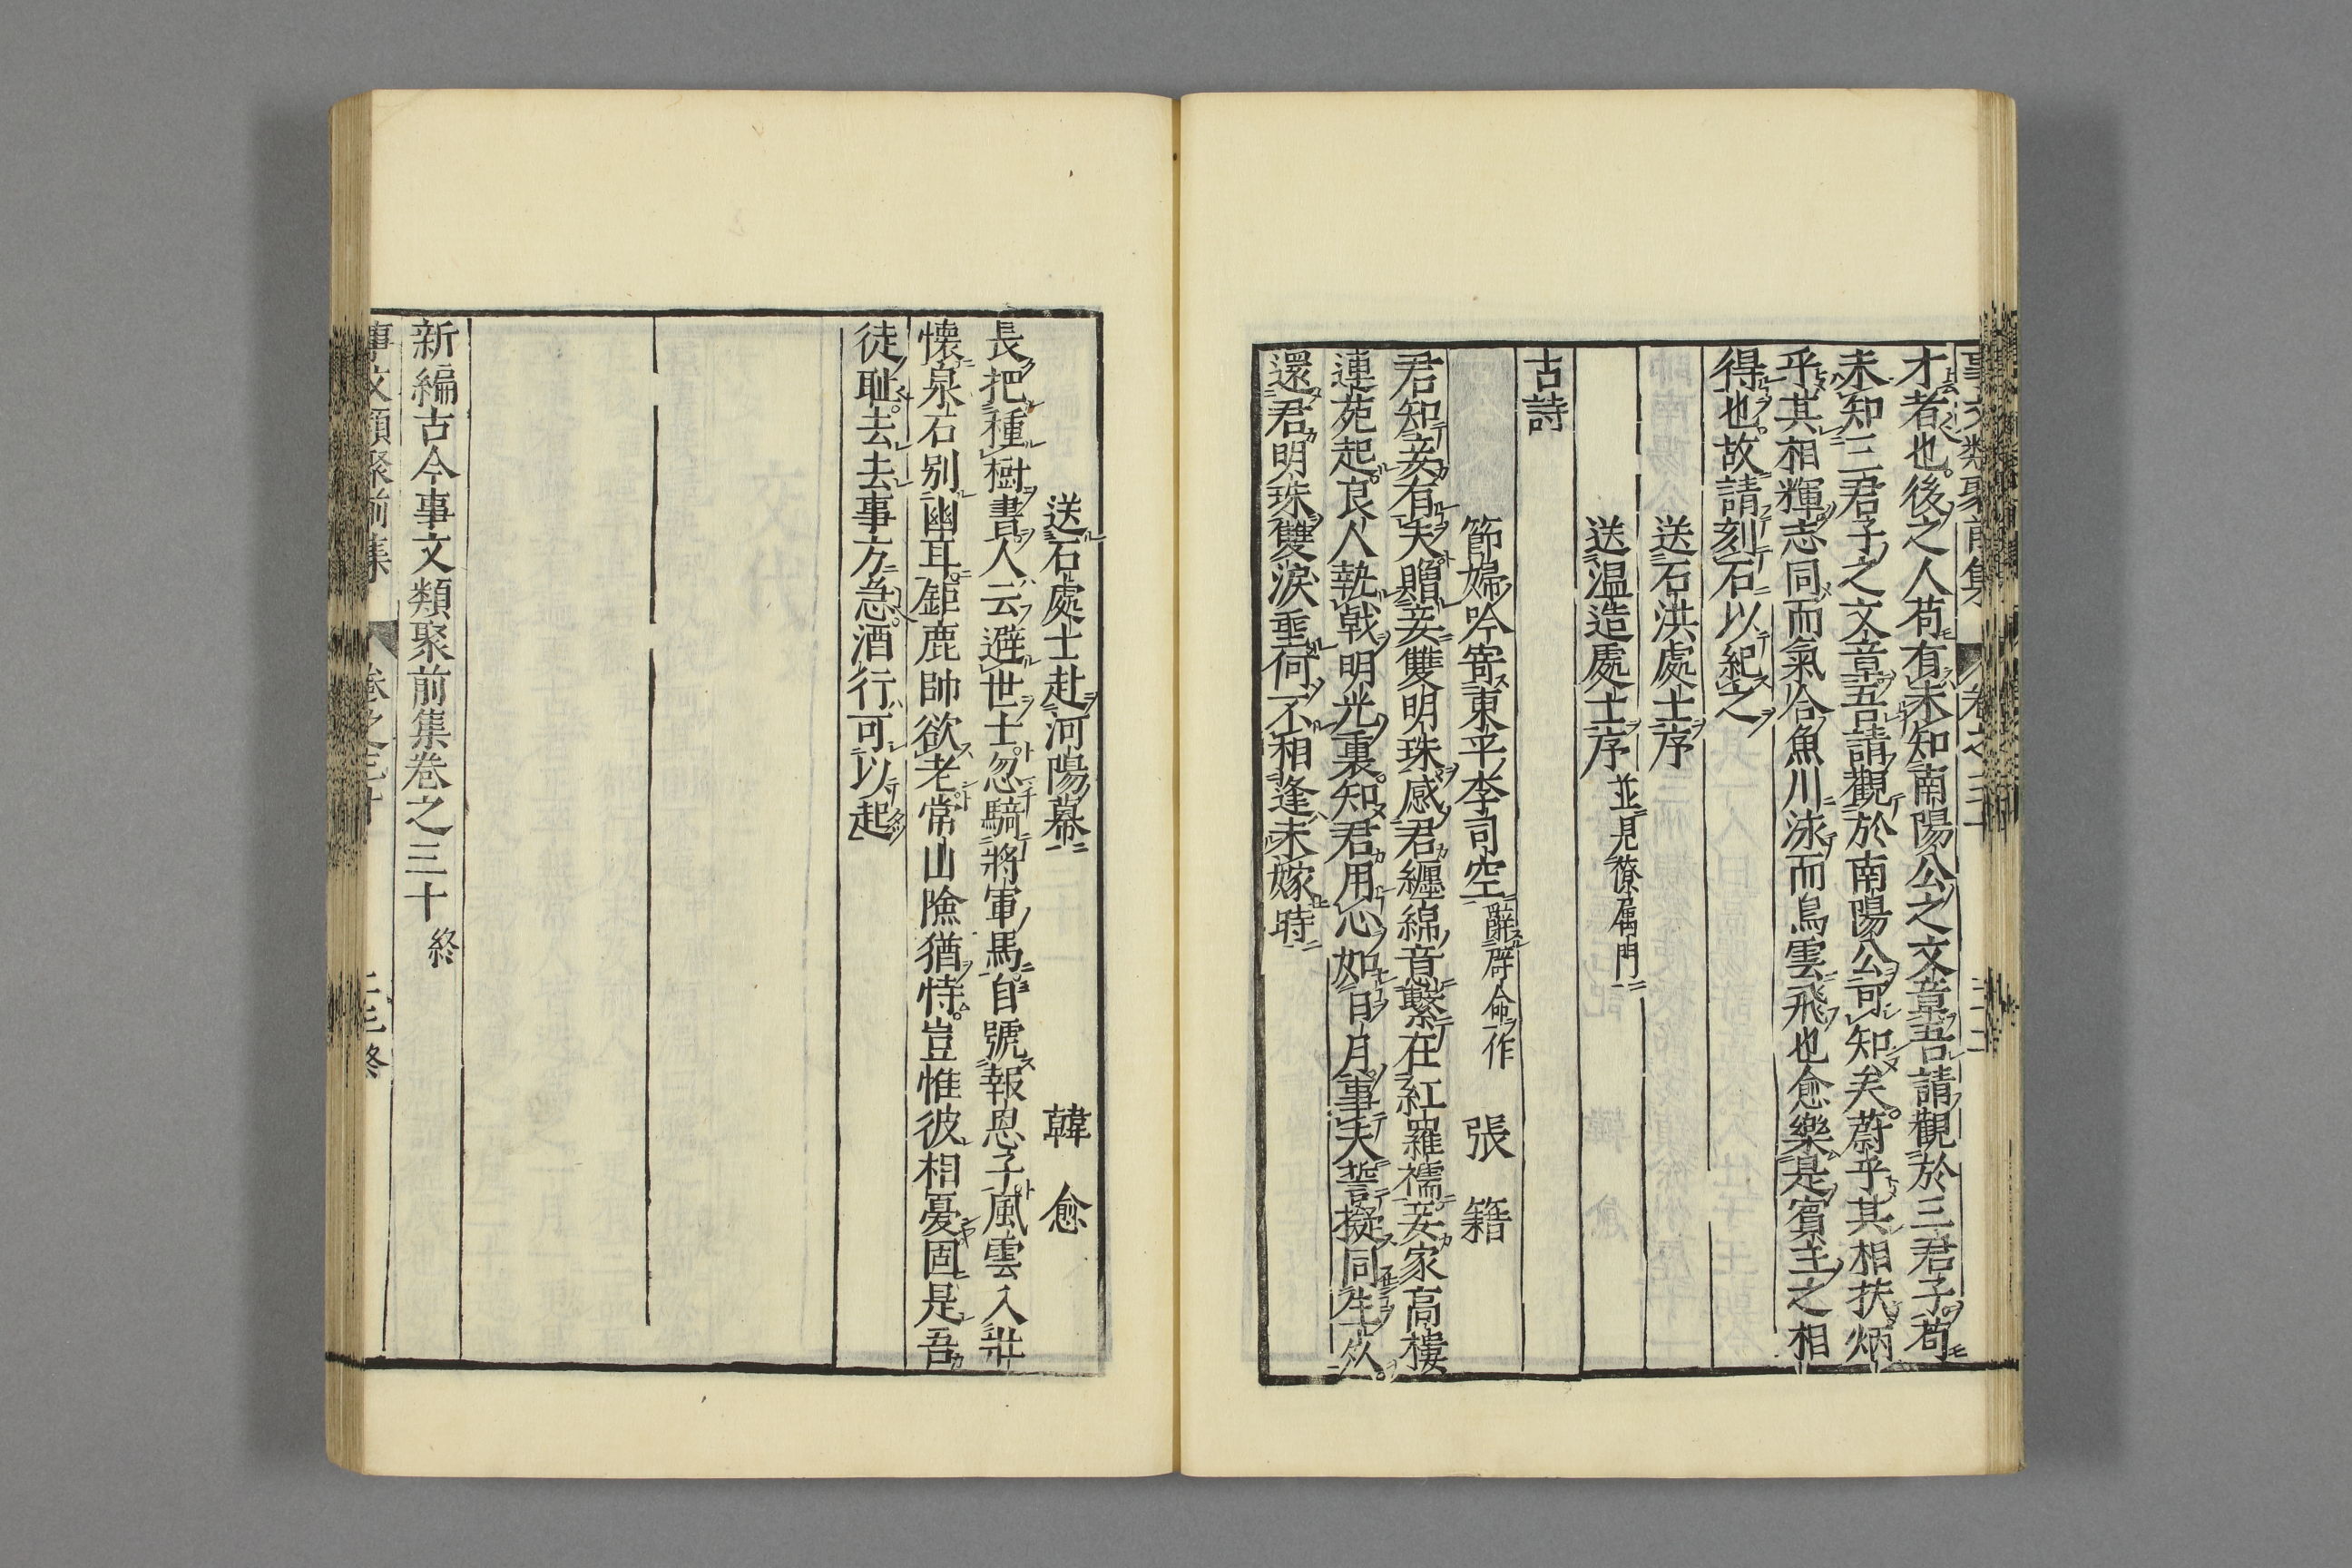 才者也後之人苟有未知南陽公之文章吾請觀於三君子苟
未知三君子之文章吾請觀於南陽公可知矣蔚乎其相扶炳
乎其相輝志同而氣合魚川泳而鳥雲飛也愈樂是賓主之相
得也故請刻石以紀之
送石洪處士序
送温造處士序 並見僚属門
古詩
節婦吟寄東平李司空 辭辟命作 張籍
君知妾有夫贈妾雙明珠感君纏綿意繫在紅羅襦妾家高樓
連苑起良人執戟明光裏知君用心如日月事夫誓擬同生死
還君明珠雙淚垂何不相逢未嫁時
送石處士赴河陽幕 韓愈
長把種樹書人云避世士忽騎將軍馬自號報恩子風雲入壯
懐泉石别幽耳鉅鹿帥欲老常山險猶恃豈惟彼相憂固是吾
徒耻去去事方急酒行可以起
新編古今事文類聚前集巻之三十 終